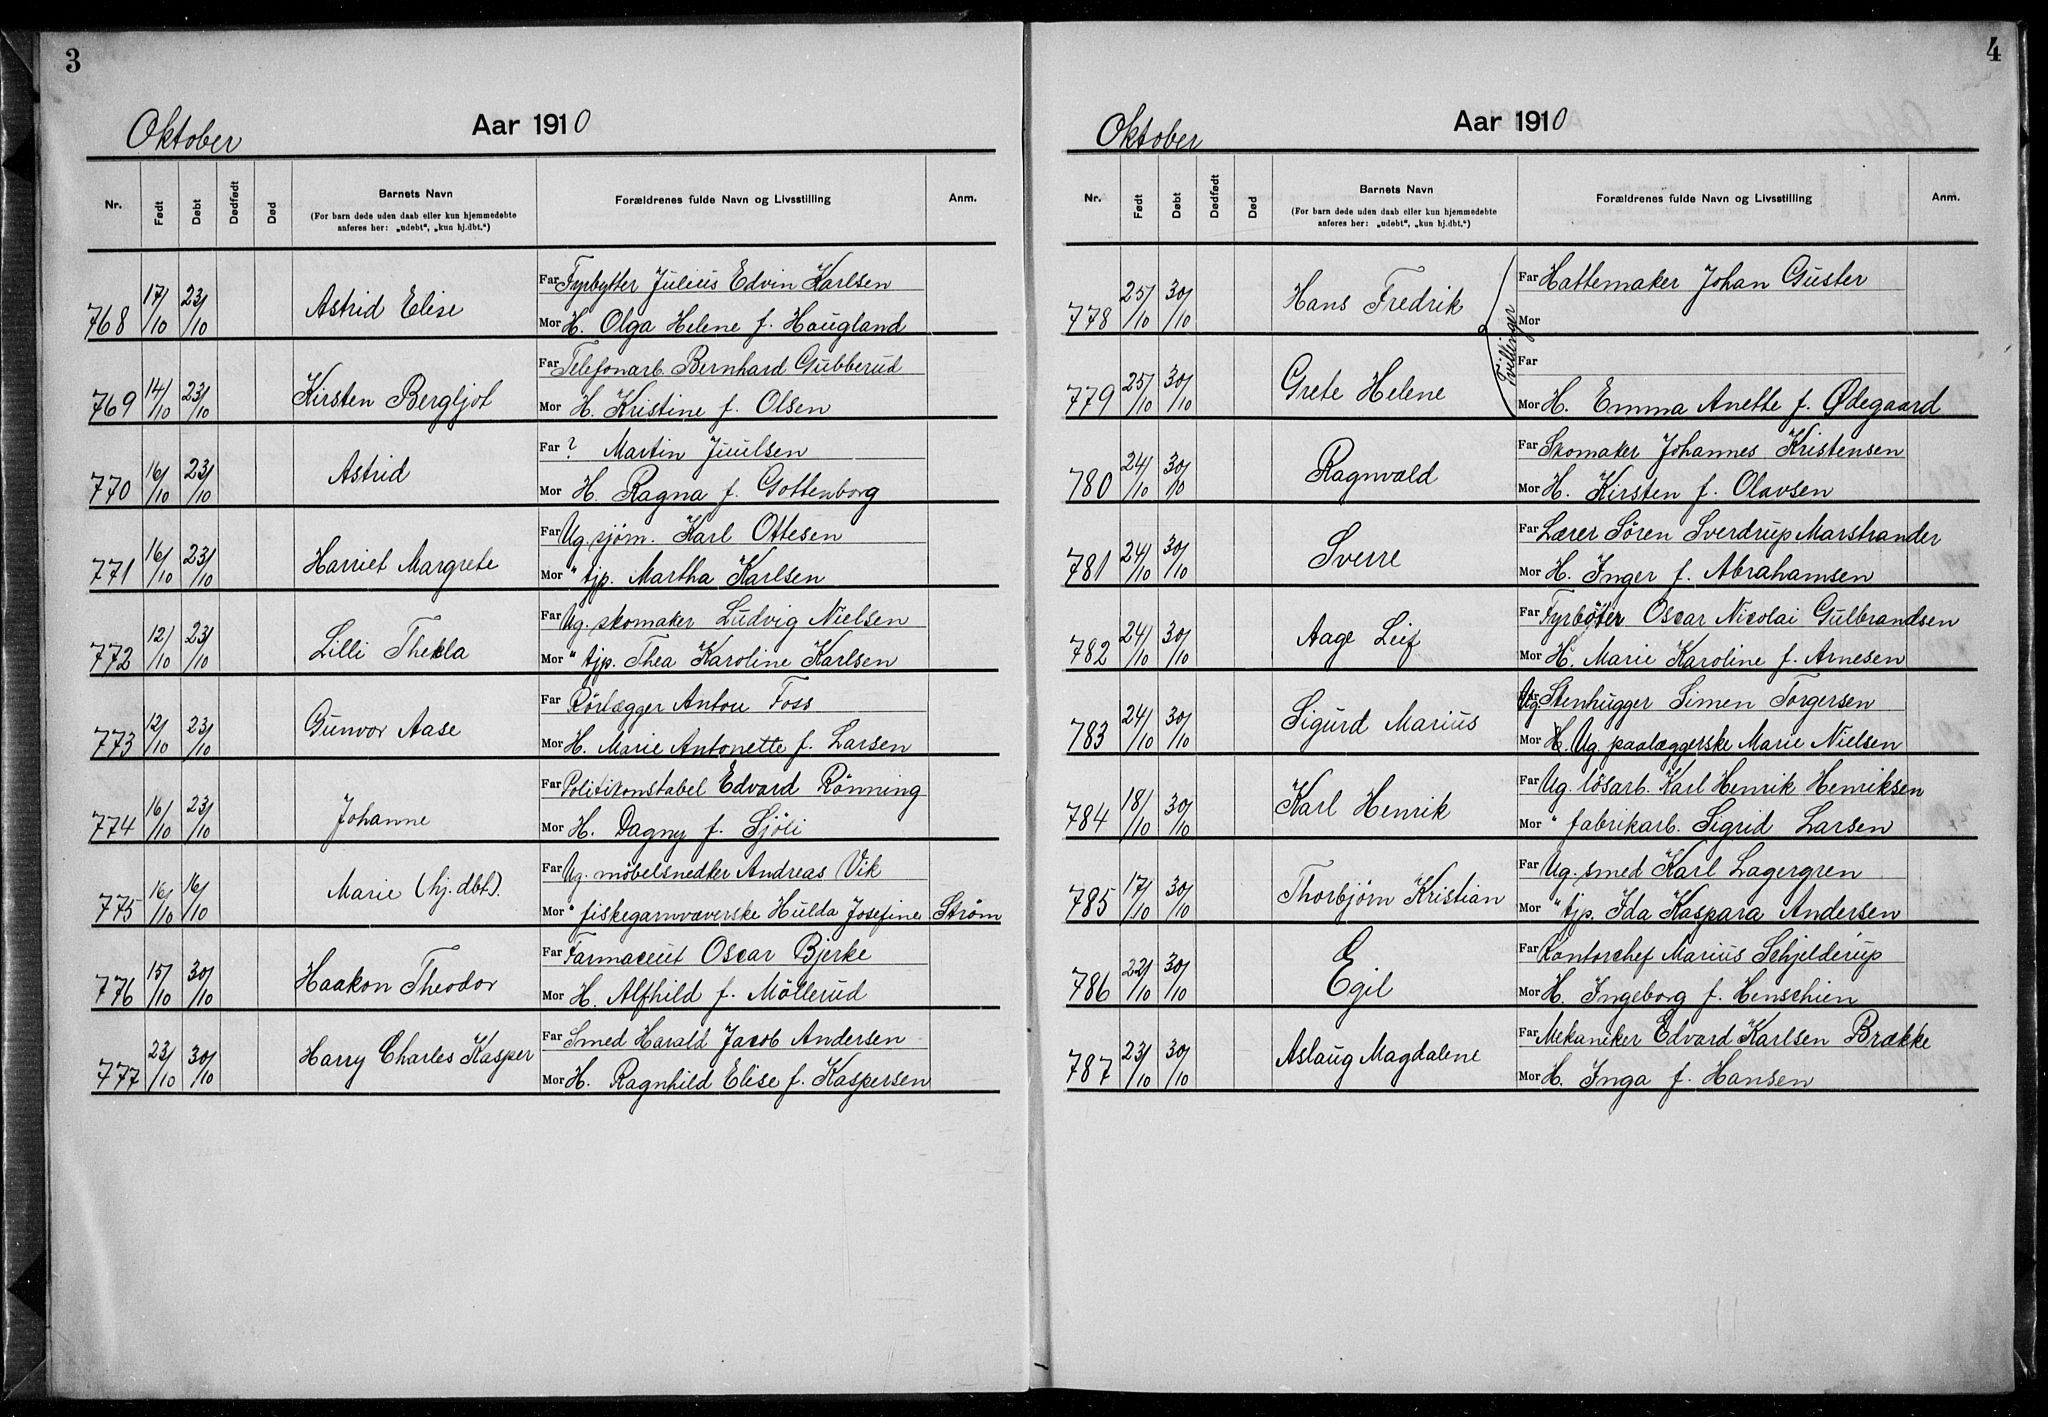 3
Oktober
Aar 1910
Nr. Født Døbt Dødfødt Død Barnets Navn Forældrenes fulde Navn og Livsstilling Anm.
(For barn døde uden daab eller kun hjemmedøbte
anføres her: „udøbt“, „kun hj.dbt.“)
768 17/10 23/10 Astrid Elise Far Fyrbytter Julius Edvin Karlsen
Mor H. Olga Helene f. Haugland
769 14/10 23/10 Kirsten Bergljot Far Telefonarb. Bernhard Gubberud
Mor H. Kristine f. Olsen
770 16/10 23/10 Astrid Far ? Martin Juulsen
Mor H. Ragna f. Gottenborg
771 16/10 23/10 Harriet Margrete Far Ug. sjøm. Karl Ottesen
Mor " tjp. Martha Karlsen
772 12/10 23/10 Lilli Thekla Far Ug. skomaker Ludvig Nielsen
Mor " tjp. Thea Karoline Karlsen
773 12/10 23/10 Gunvor Aase Far Rörlægger Anton Foss
Mor H. Marie Antonette f. Larsen
774 16/10 23/10 Johanne Far Politikonstabel Edvard Rönning
Mor H. Dagny f. Sjöli
775 16/10 16/10 Marie (hj. dbt.). Far Ug. möbelsnedker Andreas Vik
Mor " fiskegarnvæverske Hulda Josefine Strøm
776 15/10 30/10 Haakon Theodor Far Farmaceut Oscar Bjerke
Mor H. Alfhild f. Möllerud
777 23/10 30/10 Harry Charles Kasper Far Smed Harald Jacob Andersen
Mor H. Ragnhild Elise f. Kaspersen
4
Oktober
Aar 1910
Nr. Født Døbt Dødfødt Død Barnets Navn Forældrenes fulde Navn og Livsstilling Anm.
(For barn døde uden daab eller kun hjemmedøbte
anføres her: „udøbt“, „kun hj.dbt.“)
778 25/10 30/10 Hans Fredrik Far Hattemaker Johan Guster
Mor
Tvillinger
779 25/10 30/10 Grete Helene Far
Mor H. Emma Anette f. Ødegaard
780 24/10 30/10 Ragnvald Far Skomaker Johannes Kristensen
Mor H. Kirsten f. Olavsen
781 24/10 30/10 Sverre Far Lærer Sören Sverdrup Marstrander
Mor H. Inger f. Abrahamsen
782 24/10 30/10 Aage Leif Far Fyrböter Oscar Nicolai Gulbrandsen
Mor H. Marie Karoline f. Arnesen
783 24/10 30/10 Sigurd Marius Far Ug. Stenhugger Simen Torgersen
Mor H. Ug. paalæggerske Marie Nielsen
784 18/10 30/10 Karl Henrik Far Ug. lösarb. Karl Henrik Henriksen
Mor " fabrikarb. Sigrid Larsen
785 17/10 30/10 Thorbjørn Kristian Far Ug. smed Karl Lagergren
Mor " tjp. Ida Kaspara Andersen
786 22/10 30/10 Egil Far Kontorchef Marius Schjelderup
Mor H. Ingeborg f. Henschien
787 23/10 30/10 Aslaug Magdalene Far Mekaniker Edvard Karlsen Brække
Mor H. Inga f. Hansen